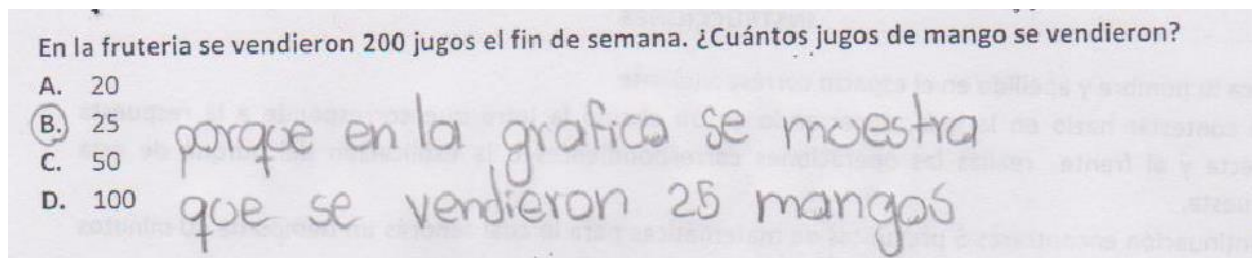 En la fruteria se vendieron 200 jugos el fin de semana. ¿Cuántos jugos de mango se vendieron?
A. 20
B. 25
C. 50
D. 100
porque en la grafica se moestra
que se vendieron 25 mangos